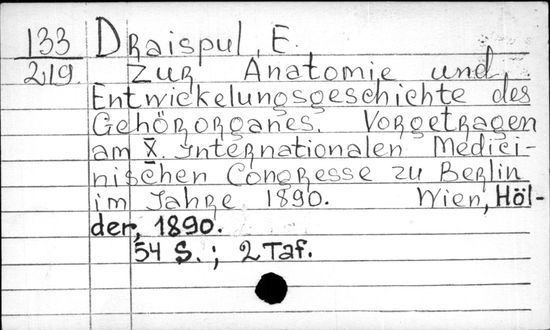 133 Draispul, E.
219. Zur Anatomie und
Entwickelungsgeschichte des
Gehörorganes. Vorgetragen
am X. Internationalen Medici-
nischen Congresse zu Berlin
im Jahre 1890. Wien, Höl-
der, 1890.
54 S.; 2 Taf.